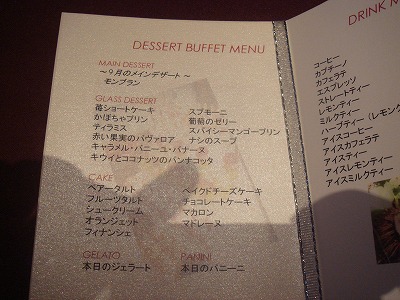 DESSERT BUFFET MENU
MAIN DESSERT
～9月のメインデザート～
モンブラン
GLASS DESSERT
苺ショートケーキ
かぼちゃプリン
ティラミス
赤い果実のババロア
キャラメル・バニーユ・バナーヌ
キウイとココナッツのパンナコッタ
スプモーニ
葡萄のゼリー
スパイシーマンゴープリン
ナシのスープ
CAKE
ペアータルト
フルーツタルト
シュークリーム
オランジェット
フィナンシェ
ベイクドチーズケーキ
チョコレートケーキ
マカロン
マドレーヌ
GELATO
本日のジェラート
PANINI
本日のパニーニ
DRINK
コーヒー
カプチーノ
カフェラテ
エスプレッソ
ストレートティー
レモンティー
ミルクティー
ハーブティー（レモング
アイスコーヒー
アイスカフェラテ
アイスティー
アイスレモンティー
アイスミルクティー